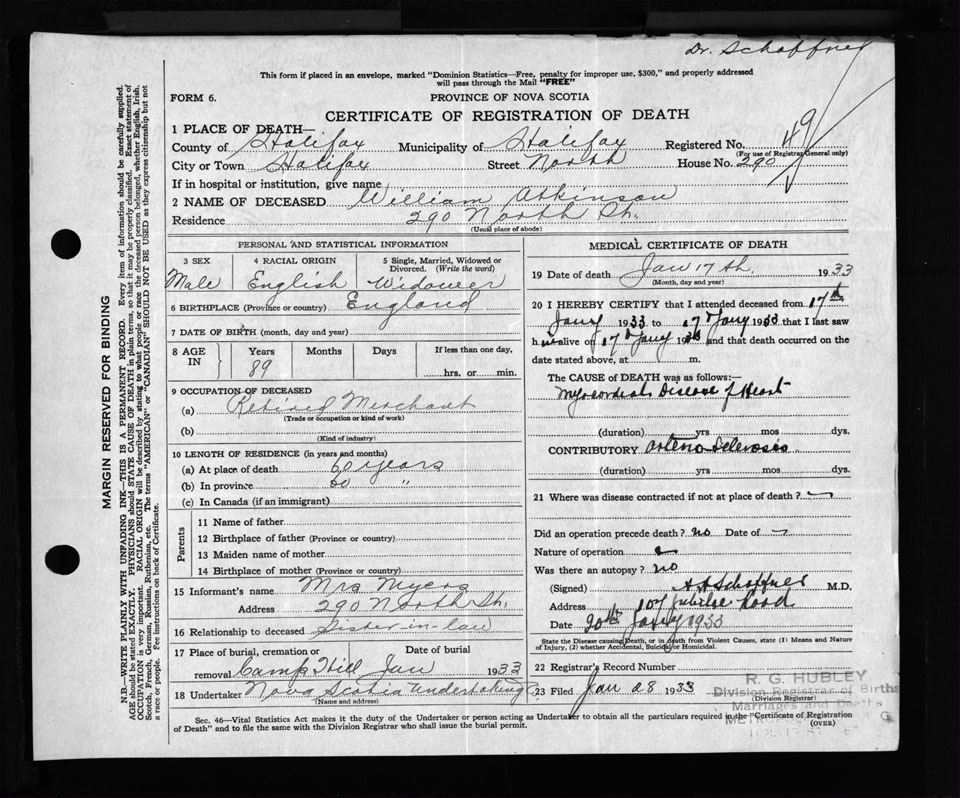 Dr. Schaffner
This form if placed in an envelope, marked "Dominion Statistics—Free, penalty for improper use, $300," and properly addressed
will pass through the Mail "FREE"
FORM 6.
PROVINCE OF NOVA SCOTIA
CERTIFICATE OF REGISTRATION OF DEATH
1 PLACE OF DEATH—
County of Halifax Municipality of Halifax Registered No. 49
(For use of Registrar General only)
City or Town Halifax Street North House No. 290
If in hospital or institution, give name
2 NAME OF DECEASED William Atkinson
Residence 290 North St.
(Usual place of abode)
MARGIN RESERVED FOR BINDING
N.B.—WRITE PLAINLY WITH UNFADING INK—THIS IS A PERMANENT RECORD. Every item of information should be carefully supplied.
AGE should be stated EXACTLY. PHYSICIANS should STATE CAUSE OF DEATH in plain terms, so that it may be properly classified. Exact statement of
OCCUPATION is very important. RACIAL ORIGIN will be described by stating to what people or race the deceased person belonged, whether English, Irish,
Scotch, French, German, Russian, Ruthenian, etc. The terms "AMERICAN" or "CANADIAN" SHOULD NOT BE USED as they express citizenship but not
a race or people. See instructions on back of Certificate.
PERSONAL AND STATISTICAL INFORMATION
3 SEX
Male
4 RACIAL ORIGIN
English
5 Single, Married, Widowed or
Divorced. (Write the word)
Widower
6 BIRTHPLACE (Province or country) England
7 DATE OF BIRTH (month, day and year)
8 AGE
IN
Years Months Days If less than one day,
89
hrs. or min.
9 OCCUPATION OF DECEASED
(a) Retired Merchant
(Trade or occupation or kind of work)
(b)
(Kind of industry)
10 LENGTH OF RESIDENCE (in years and months)
(a) At place of death 60 years
(b) In province 60 "
(c) In Canada (if an immigrant)
Parents
11 Name of father
12 Birthplace of father (Province or country)
13 Maiden name of mother
14 Birthplace of mother (Province or country)
15 Informant's name Mrs Myers
Address 290 North St.
16 Relationship to deceased Sister-in-law
17 Place of burial, cremation or Date of burial
removal Camp Hill Jan 1933
18 Undertaker Nova Scotia Undertaking
(Name and address)
MEDICAL CERTIFICATE OF DEATH
19 Date of death Jan 17th. 1933
(Month, day and year)
20 I HEREBY CERTIFY that I attended deceased from 17th
Jany 1933 to 17 Jany 1933 that I last saw
him alive on 17 Jany 1933 and that death occurred on the
date stated above, at m.
The CAUSE OF DEATH was as follows:—
Myocardial Disease of Heart
(duration) yrs mos dys.
CONTRIBUTORY arterio Sclerosis
(duration) yrs mos dys.
21 Where was disease contracted if not at place of death?
Did an operation precede death? no Date of
Nature of operation
Was there an autopsy? no
(Signed) Schaffner M.D.
Address 107 Jubilee Road
Date 20th Jany 1933
State the Disease causing Death, or in death from Violent Causes, state (1) Means and Nature
of Injury, (2) whether Accidental, Suicidal or Homicidal.
22 Registrar's Record Number
23 Filed Jan 28 1933
(Division Registrar)
R. G. HUBLEY
Division Registrar of Births
Marriages and Deaths
Sec. 46—Vital Statistics Act makes it the duty of the Undertaker or person acting as Undertaker to obtain all the particulars required in the "Certificate of Registration
of Death" and to file the same with the Division Registrar who shall issue the burial permit.
(OVER)